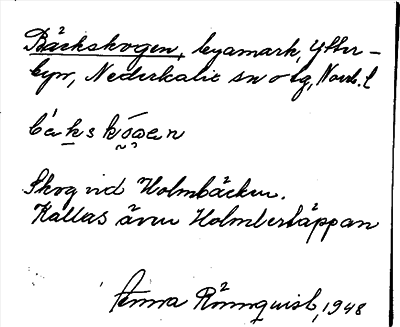 Bäckskogen, byamark, Ytter-
byn, Nederkalix sn o tg, Norrb. l
bäkskógen
Skog vid Holmbäcken.
Kallas även Holmbertäppan
Anna Rönnquist, 1948